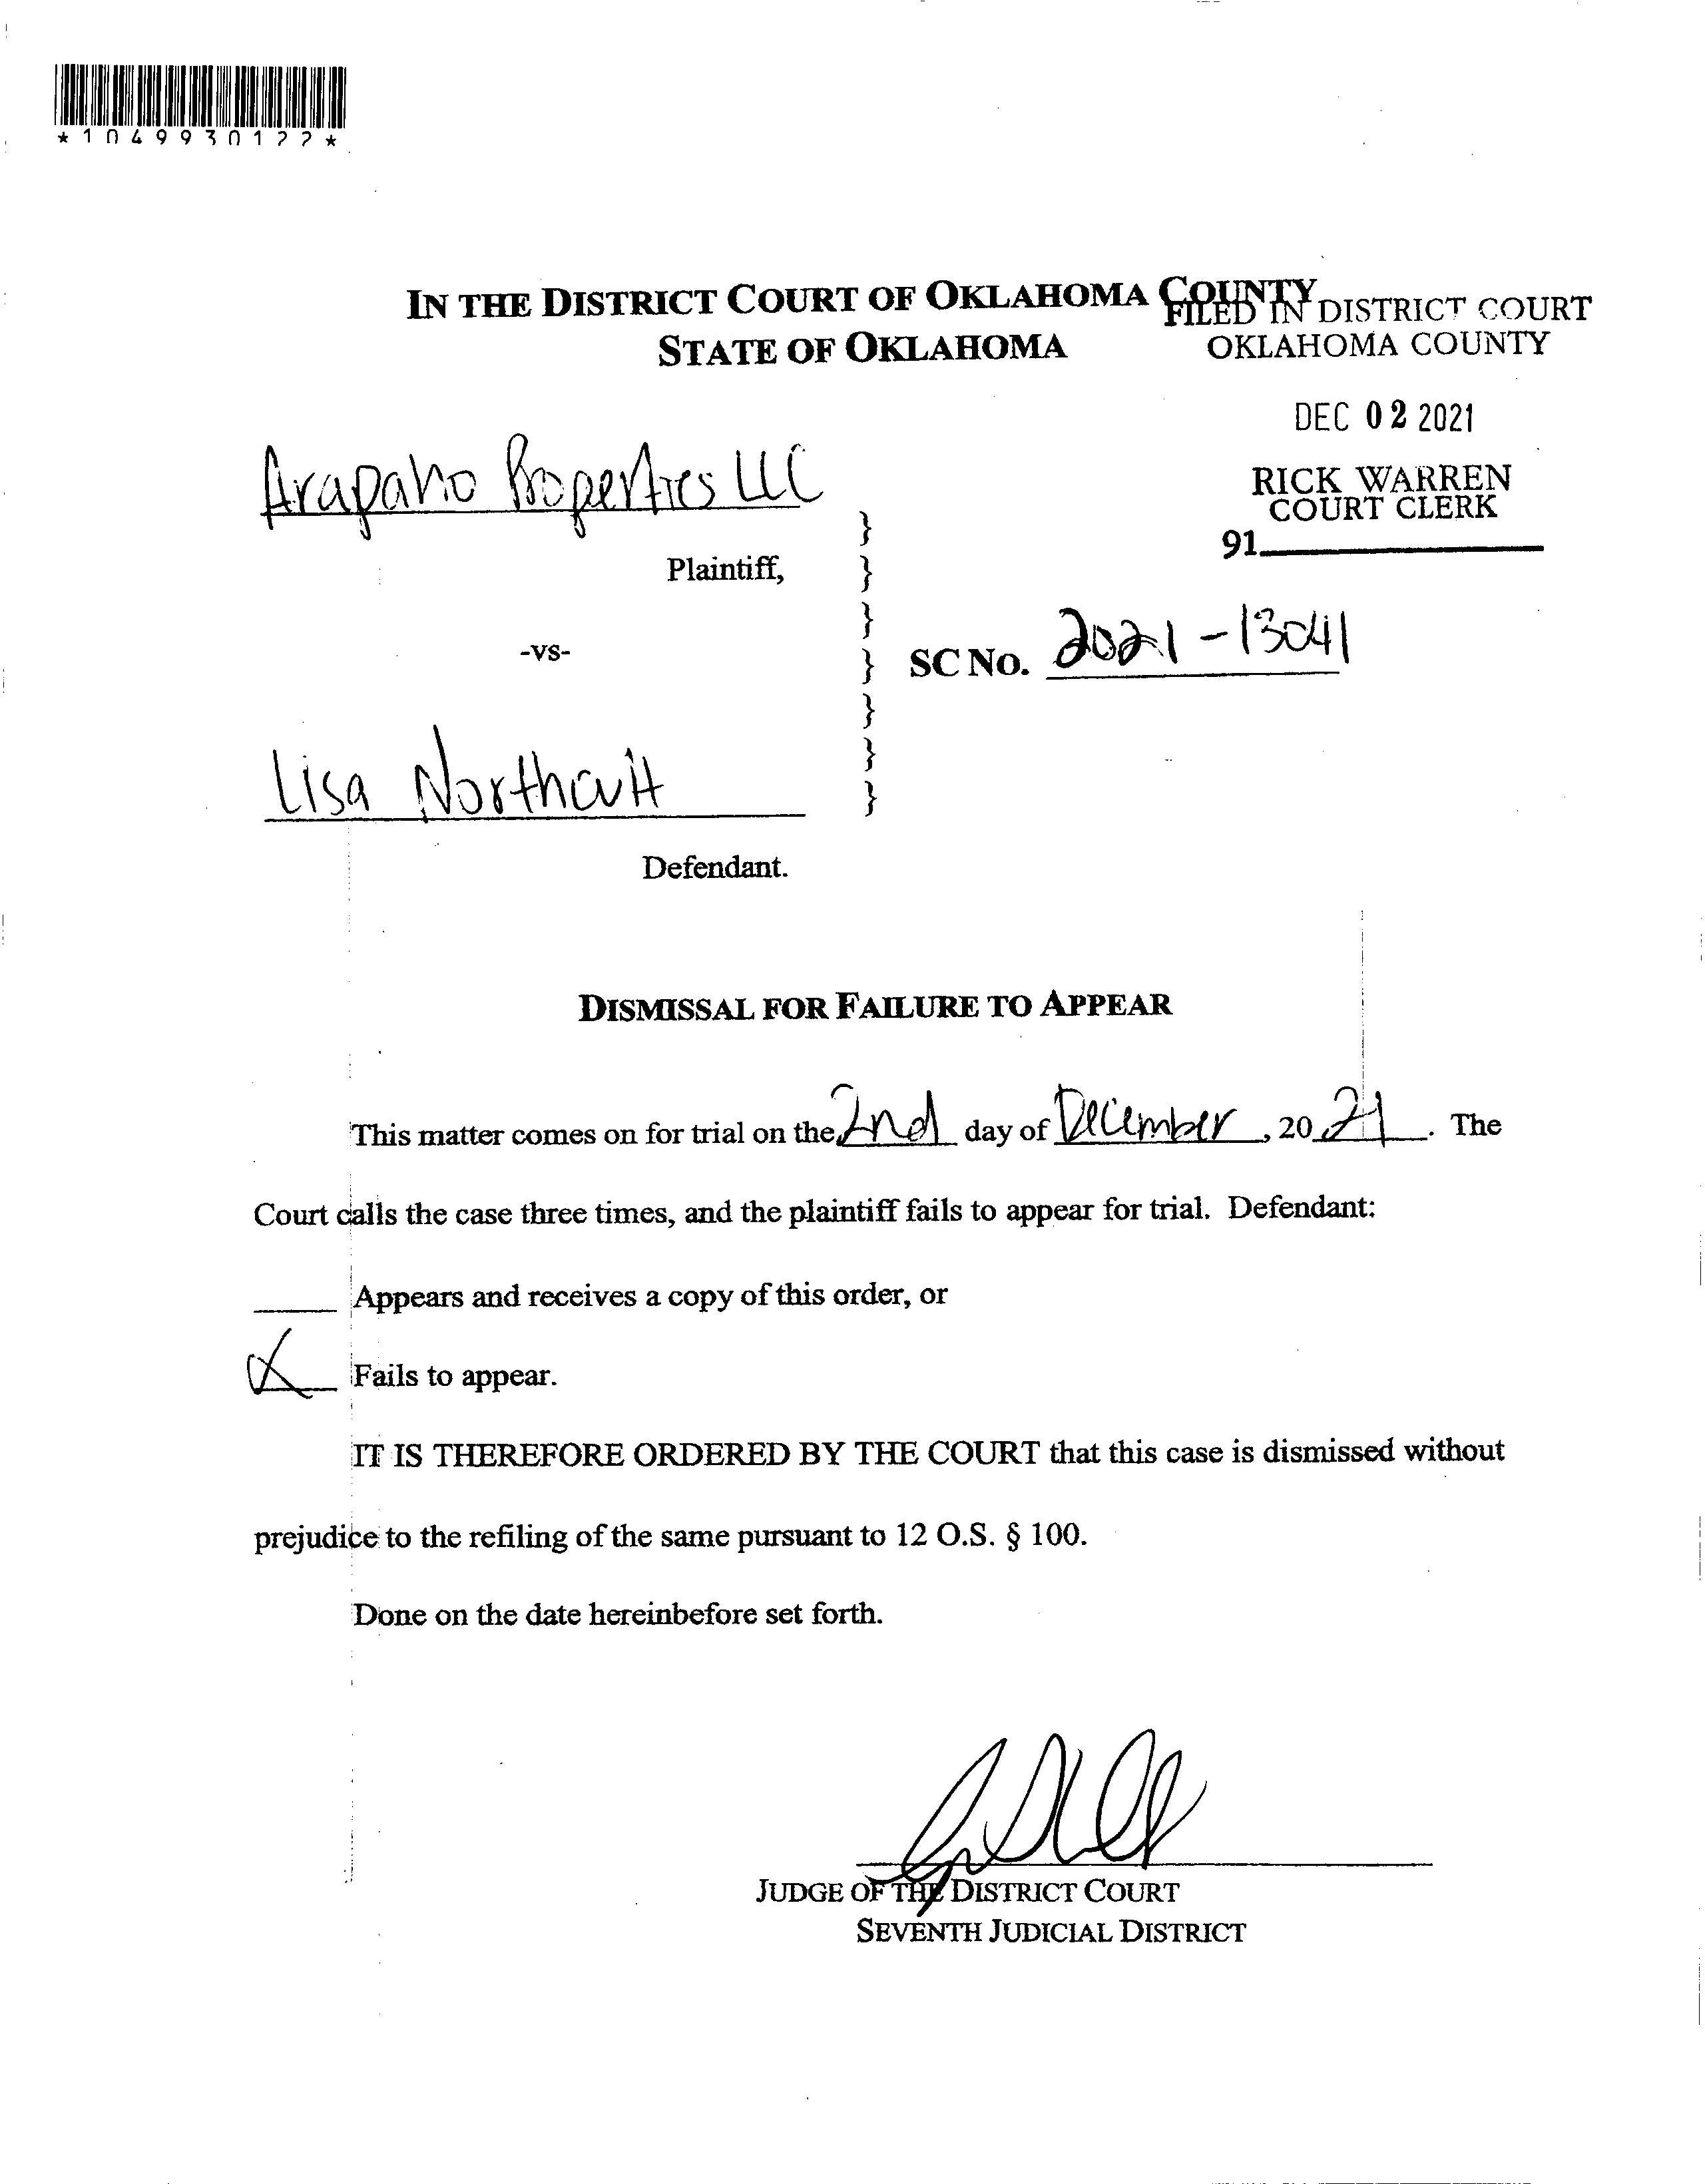 *1049930122*
IN THE DISTRICT COURT OF OKLAHOMA COUNTY
STATE OF OKLAHOMA
FILED IN DISTRICT COURT
OKLAHOMA COUNTY
DEC 02 2021
RICK WARREN
COURT CLERK
91
Arapaho Properties LLC
Plaintiff,
-vs-
SC No. 2021-13041
Lisa Northcutt
Defendant.
DISMISSAL FOR FAILURE TO APPEAR
This matter comes on for trial on the 2nd day of December, 2021. The
Court calls the case three times, and the plaintiff fails to appear for trial. Defendant:
____ Appears and receives a copy of this order, or
X Fails to appear.
IT IS THEREFORE ORDERED BY THE COURT that this case is dismissed without
prejudice to the refiling of the same pursuant to 12 O.S. § 100.
Done on the date hereinbefore set forth.
JUDGE OF THE DISTRICT COURT
SEVENTH JUDICIAL DISTRICT